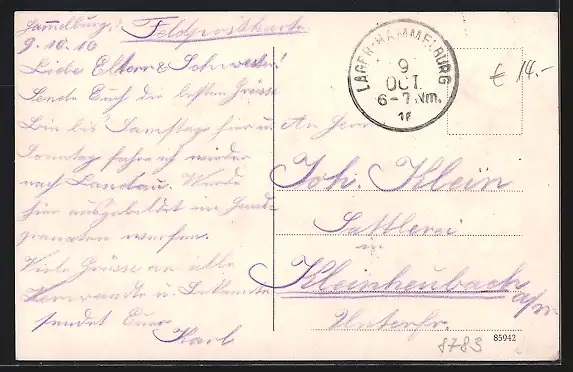 Hammelburg,
9.10.16
Feldpostkarte
Liebe Eltern & Schwester!
Sende Euch die besten Grüsse
Bin bis Samstag hier u.
Sonntag fahre ich wieder
nach Landau. Werde
hier ausgebildet im Hand-
granaten werfen.
Viele Grüsse an alle
Verwandte u. Bekannte
sendet Euer
Karl
LAGER-HAMMELBURG
9
OCT.
6-7 Nm.
€ 14.-
An Herrn
Joh. Klein
Sattlerei
in
Kleinheubach
a/m
Unterfr.
8783
85942